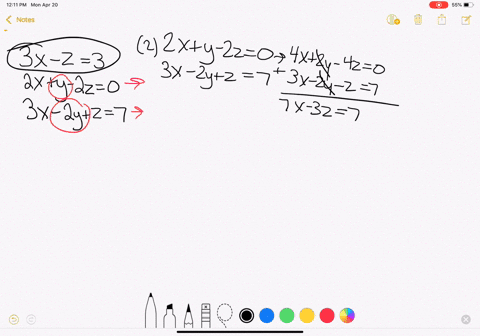 12:11 PM Mon Apr 20
55%
Notes
3x-z=3
2x+y-2z=0→
3x-2y+z=7→
(2)2x+y-2z=0→
3x-2y+z=7+
4x+2y-4z=0
3x-2y-z=7
7x-3z=7